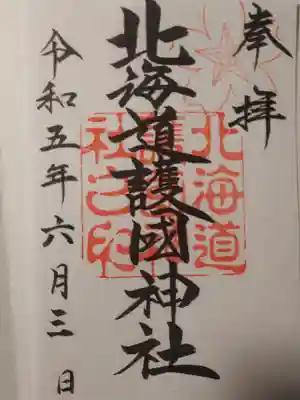 奉拝
北海道護國神社
北海道護國神社之印
令和五年六月三日